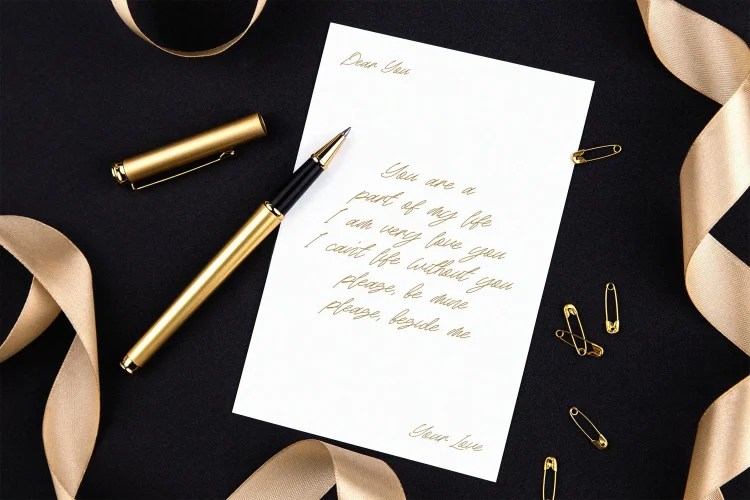 Dear You
You are a
part of my life
I am very love you
I can't life without you
please, be mine
please, beside me
Your Love